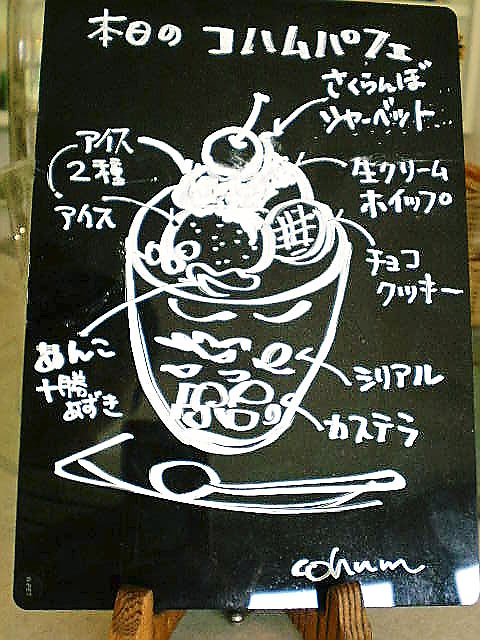 本日の コハムパフェ
さくらんぼ
シャーベット
アイス
2種
アイス
生クリーム
ホイップ
チョコ
クッキー
あんこ
十勝
あずき
シリアル
カステラ
cohum